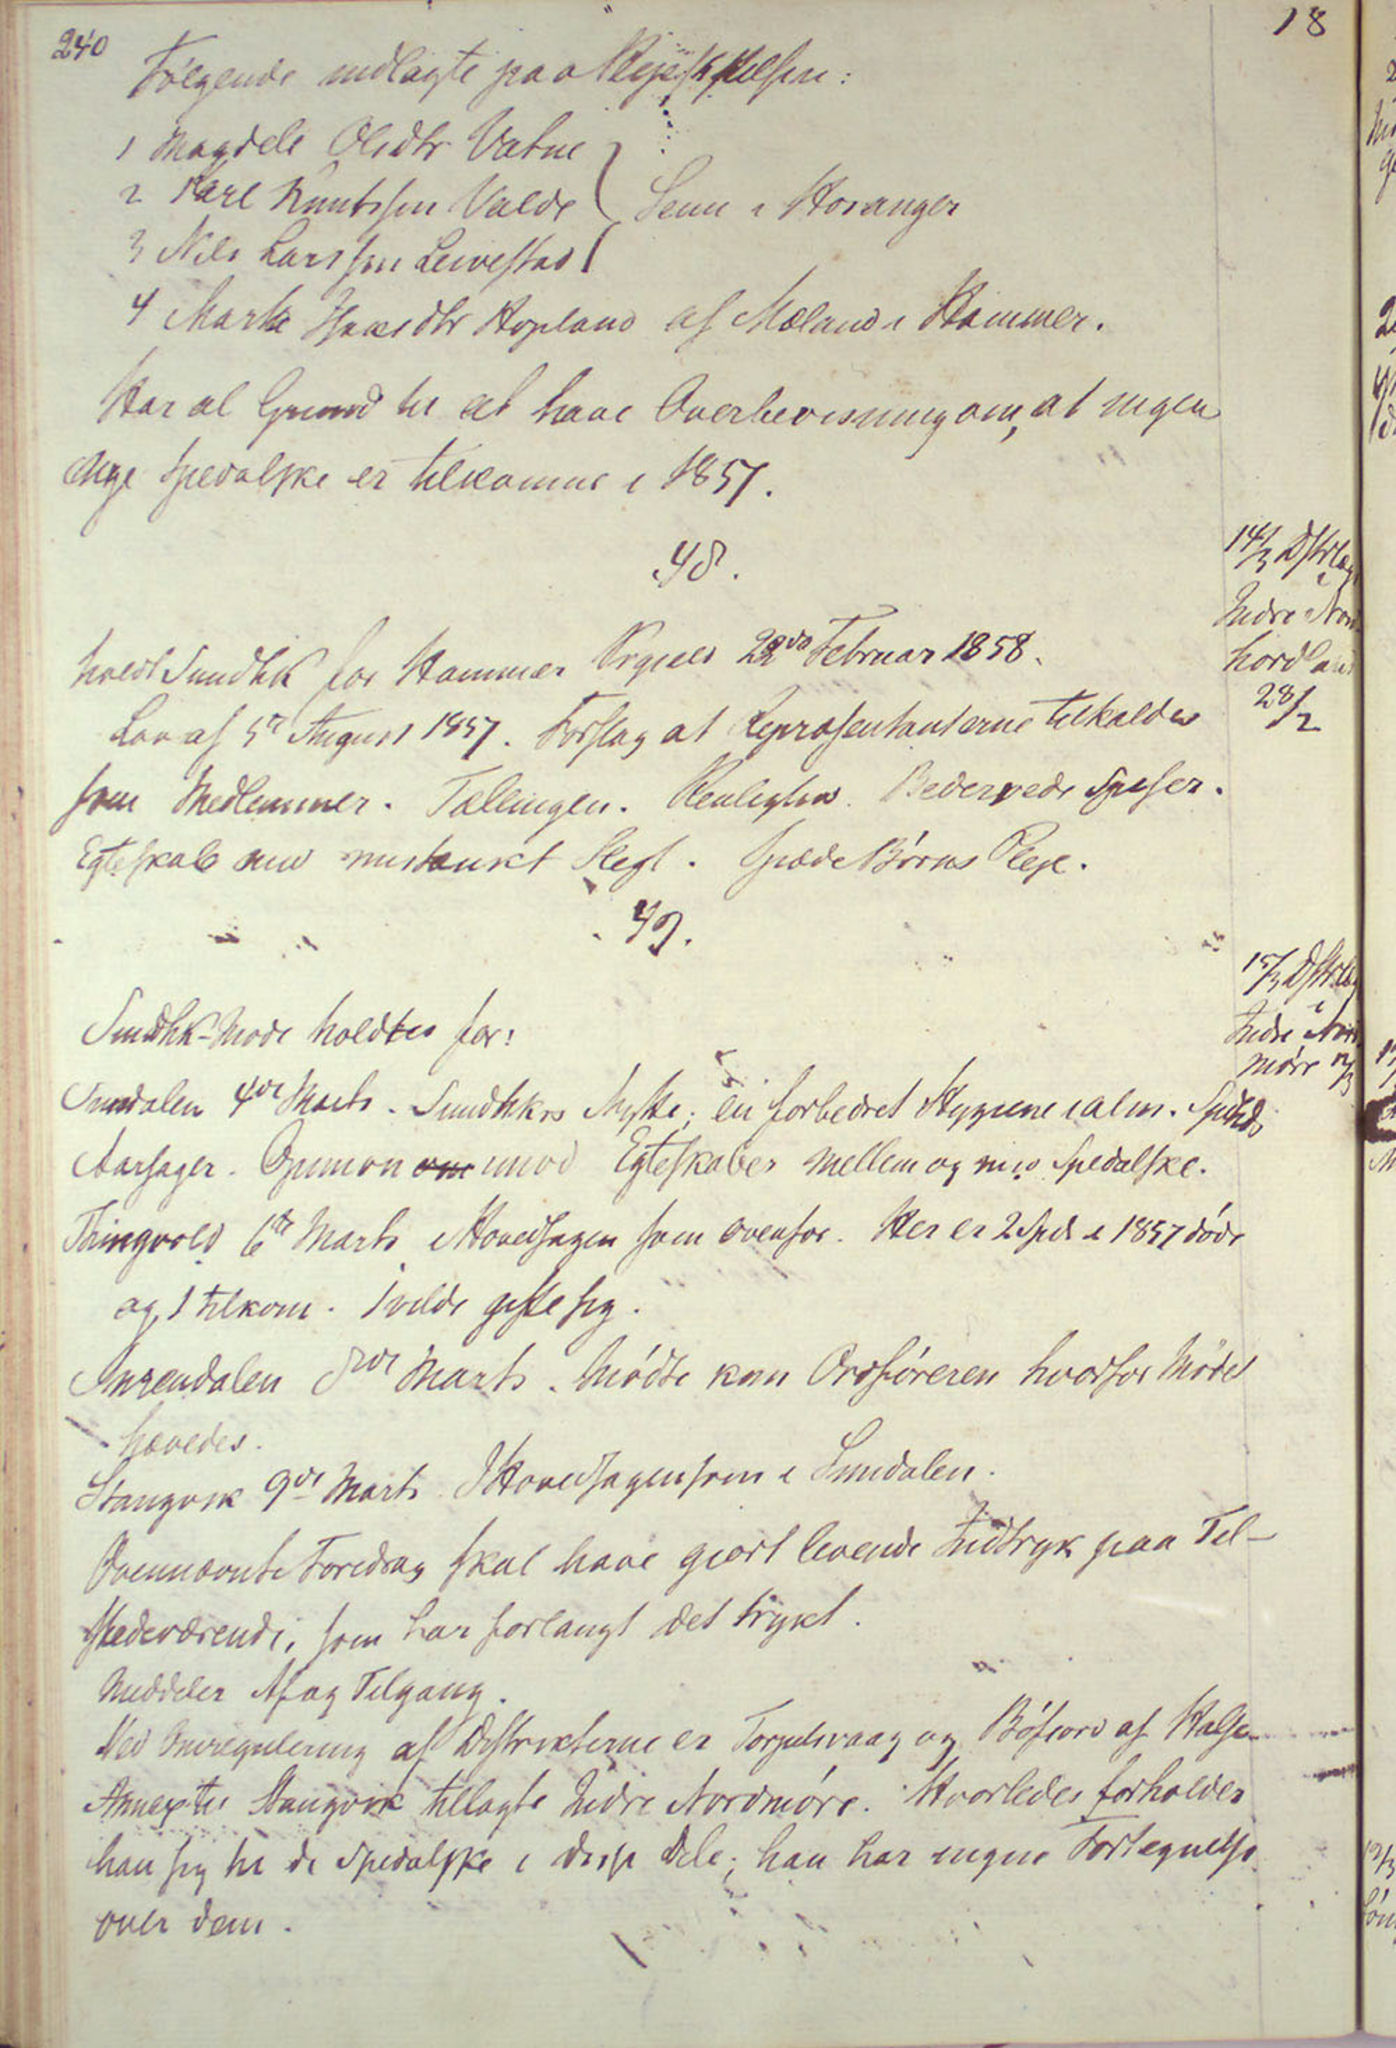 240
18
Følgende indlagte paa Plejestiftelsen:
1 Magdele Olsdtr Vatne
2 Karl Knutssen Valde } Lenu i Hosanger
3 Nils Larssen Leivestad
4 Marta Isaksdtr Hopland af Mæland i Hammer.
Har al Grund til at have Overbevisning om, at ingen
nye spedalske er tilkomne i 1857.
48.
14/3 Dstrlæg
i
Indre Nord
hordland
28/2
holdt Sundhk for Hammer Prgjeld 22de Februar 1858.
Lov af 5te August 1857. Forslag at Repræsentanterne tilkaldes
som Medlemmer. Tællingen. Renlighed. Bedervede Spiser.
Egteskab med mistænkt Slegt. spæde Børns Pleje.
49.
15/3 Dstrlæg
i
Indre Nord
møre 12/3
Sundhk-Møde holdtes for:
Sundalen 4de Marts. Sundhkns Nytte; en forbedret Hygiene i alm. Spdskds
Aarsager. Opinion om imod Egteskaber mellem og med Spedalske.
Thingvold 6te Marts i Hovedsagen som ovenfor. Her er 2 Spds i 1857 døde
og 1 tilkom. 1 vilde gifte sig.
Surendalen 8de Marts. Mødte kun Ordføreren hvorfor Mødet
hævedes.
Stangvik 9de Marts I Hovedsagen som i Sundalen.
Ovennævnte Foredrag skal have gjort levende Indtryk paa Til-
stedeværende, som har forlangt det trykt.
Meddeler Af og Tilgang.
Ved Omregulering af Distrikterne er Torjulsvaag og Bøfjord af Halse
Annex til Stangvik tillagte Indre Nordmøre. Hvorledes forholder
han sig til de Spedalske i disse Dele; han har ingen Fortegnelse
over dem.